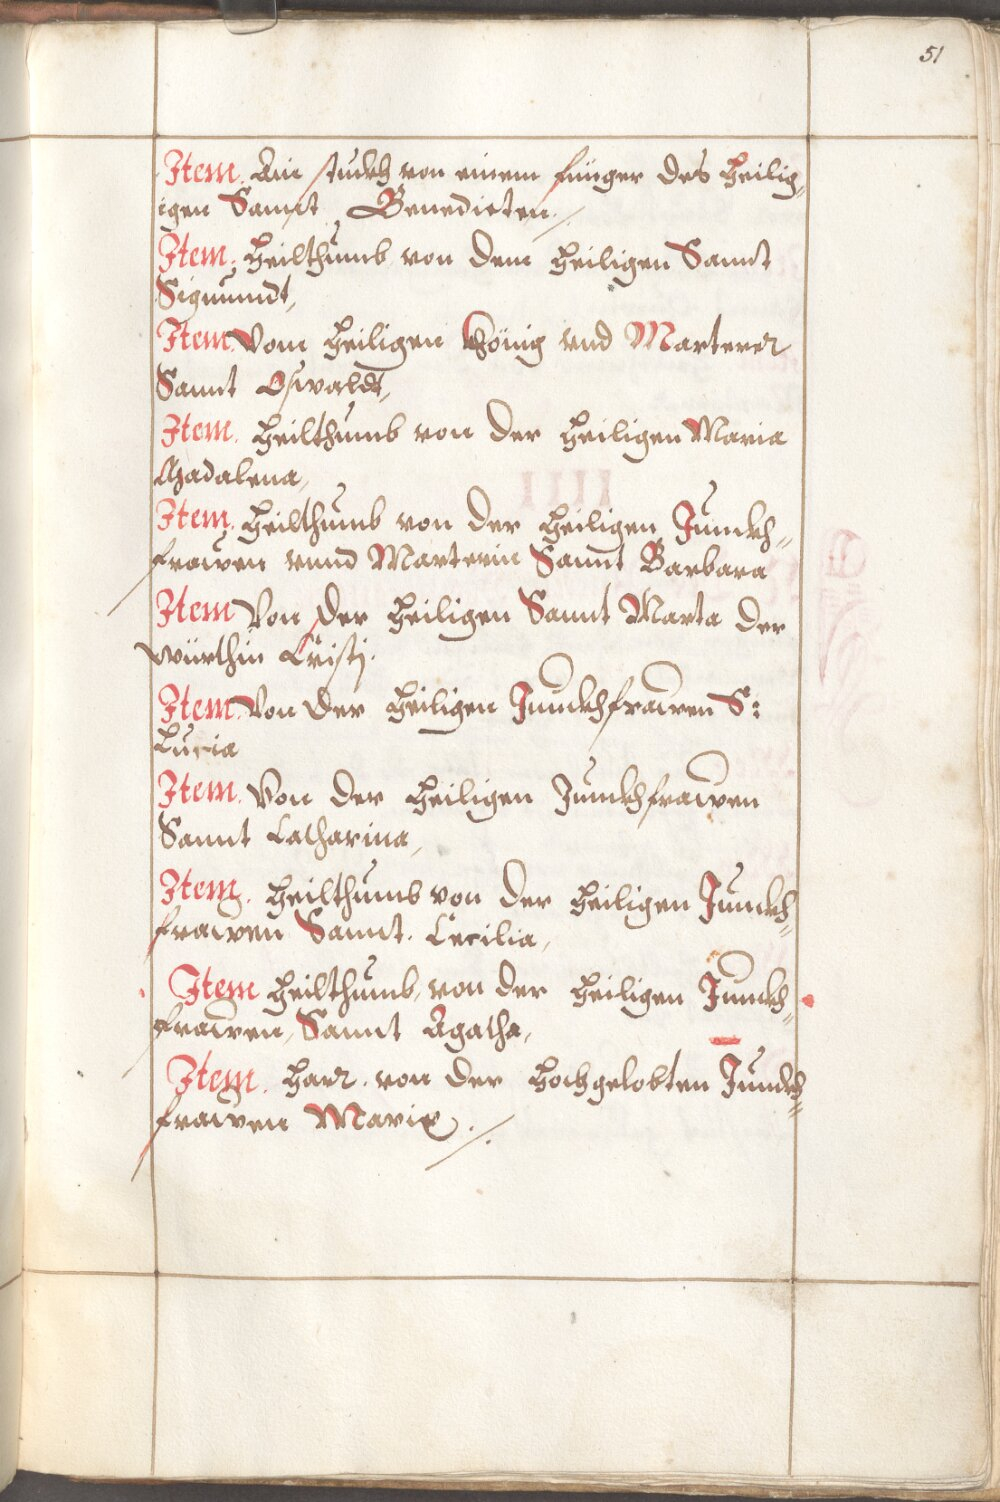 51
Item. Ain stuckh von einem finger des heilig,
igen Sannt Benedicten.
Item, heilthumb von dem heiligen Sannt
Sigmundt,
Item Vom heiligen König vnd Marterer
Sannt Oswaldt,
Item. heilthumb von der heiligen Maria
Madalena,
Item. heilthumb von der heiligen Junckh=
frawen vnnd Marterin Sannt Barbara
Item Von der heiligen Sannt Marta der
würthin Cristj.
Item. Von der heiligen Junckhfrawen S:
Lucia
Item. Von der heiligen Junckhfrawen
Sannt Catharina,
Item. heilthumb von der heiligen Junckh=
frawen Sannt. Cecilia,
Item heilthumb, von der heiligen Junckh=
frawen, Sannt Agatha,
Item. harr. von der hochgelobten Junckh=
frawen Mariæ.